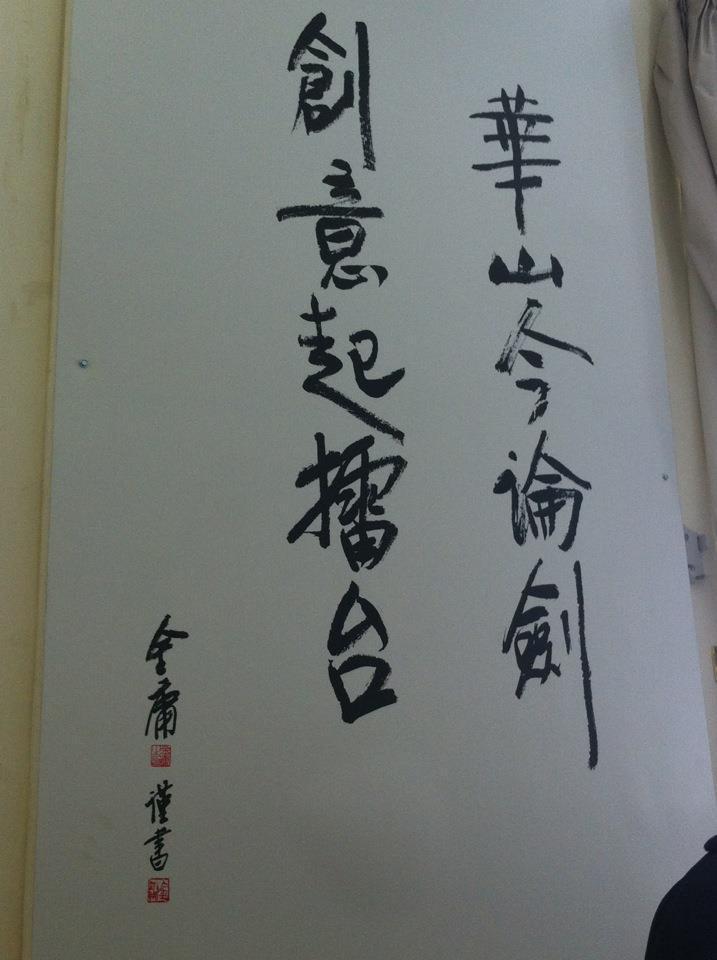 華山今論劍
創意起擂台
金庸
謹書